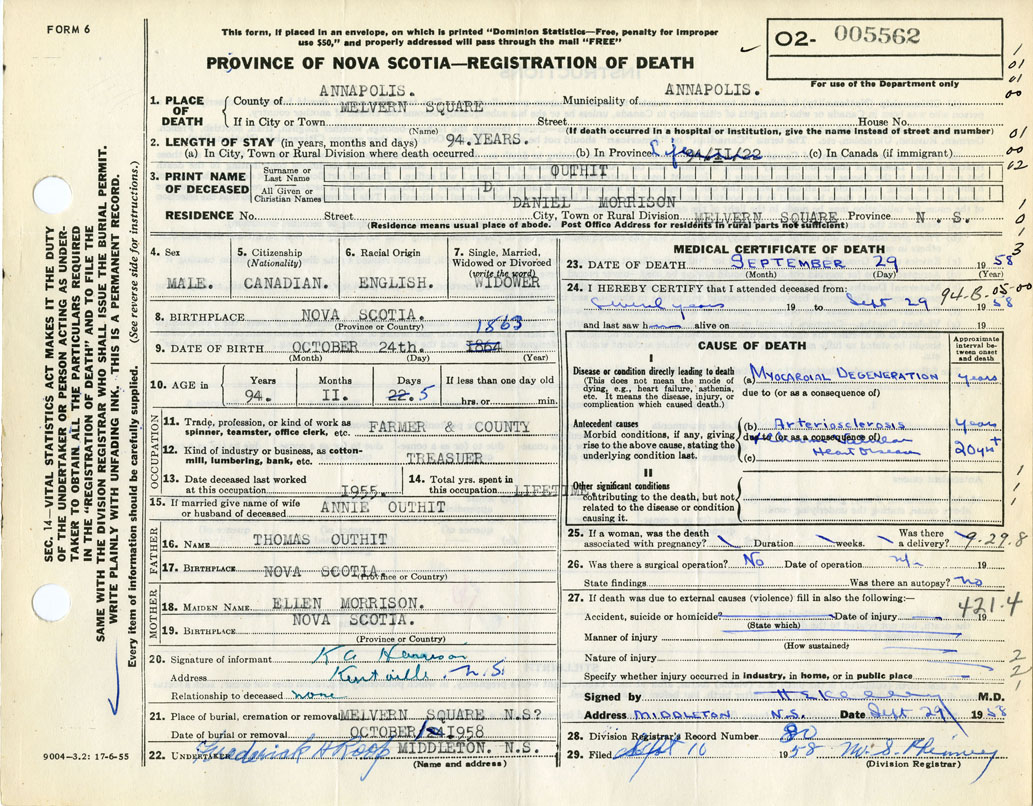 FORM 6
This form, if placed in an envelope, on which is printed "Dominion Statistics—Free, penalty for improper
use $50," and properly addressed will pass through the mail "FREE"
O2- 005562
PROVINCE OF NOVA SCOTIA—REGISTRATION OF DEATH
For use of the Department only
1. PLACE OF DEATH
County of ANNAPOLIS. Municipality of ANNAPOLIS.
MELVERN SQUARE
If in City or Town Street House No.
(Name) (If death occurred in a hospital or institution, give the name instead of street and number)
2. LENGTH OF STAY (in years, months and days) 94.YEARS.
(a) In City, Town or Rural Division where death occurred (b) In Province Life 94/II/22 (c) In Canada (if immigrant)
3. PRINT NAME OF DECEASED
Surname or Last Name OUTHIT
All Given or Christian Names D
DANIEL MORRISON
RESIDENCE No. Street City, Town or Rural Division MELVERN SQUARE Province N. S.
(Residence means usual place of abode. Post Office Address for residents in rural parts not sufficient)
4. Sex
MALE.
5. Citizenship
(Nationality)
CANADIAN.
6. Racial Origin
ENGLISH.
7. Single, Married,
Widowed or Divorced
(write the word)
WIDOWER
8. BIRTHPLACE NOVA SCOTIA.
(Province or Country)
1863
9. DATE OF BIRTH OCTOBER 24th. 1864
(Month) (Day) (Year)
10. AGE in
Years Months Days If less than one day old
94. II. 22. 5 hrs. or min.
OCCUPATION
11. Trade, profession, or kind of work as
spinner, teamster, office clerk, etc. FARMER & COUNTY
12. Kind of industry or business, as cotton-
mill, lumbering, bank, etc. TREASUER
13. Date deceased last worked
at this occupation 1955.
14. Total yrs. spent in
this occupation LIFETIME
15. If married give name of wife
or husband of deceased ANNIE OUTHIT
FATHER
16. NAME THOMAS OUTHIT
17. BIRTHPLACE NOVA SCOTIA.
(Province or Country)
MOTHER
18. MAIDEN NAME ELLEN MORRISON.
19. BIRTHPLACE NOVA SCOTIA.
(Province or Country)
20. Signature of informant
Address Kentville. N.S.
Relationship to deceased none
21. Place of burial, cremation or removal MELVERN SQUARE N.S?
Date of burial or removal OCTOBER 1958
22. UNDERTAKER Frederick A Roop MIDDLETON. N.S.
(Name and address)
9004—3.2: 17-6-55
SEC. 14—VITAL STATISTICS ACT MAKES IT THE DUTY
OF THE UNDERTAKER OR PERSON ACTING AS UNDER-
TAKER TO OBTAIN ALL THE PARTICULARS REQUIRED
IN THE "REGISTRATION OF DEATH" AND TO FILE THE
SAME WITH THE DIVISION REGISTRAR WHO SHALL ISSUE THE BURIAL PERMIT.
WRITE PLAINLY WITH UNFADING INK. THIS IS A PERMANENT RECORD.
Every item of information should be carefully supplied. (See reverse side for instructions.)
MEDICAL CERTIFICATE OF DEATH
23. DATE OF DEATH SEPTEMBER 29 1958
(Month) (Day) (Year)
24. I HEREBY CERTIFY that I attended deceased from: 94-B.05-00
Several years 19 to Sept 29 1958
and last saw h alive on 19
CAUSE OF DEATH
Approximate interval between onset and death
I
Disease or condition directly leading to death
(This does not mean the mode of
dying, e.g., heart failure, asthenia,
etc. It means the disease, injury, or
complication which caused death.)
(a) MYOCARDIAL DEGENERATION years
due to (or as a consequence of)
Antecedent causes
Morbid conditions, if any, giving
rise to the above cause, stating the
underlying condition last.
(b) Arteriosclerosis years
due to (or as a consequence of)
(c) Heart Disease 20 yrs +
II
Other significant conditions
contributing to the death, but not
related to the disease or condition
causing it.
25. If a woman, was the death
associated with pregnancy? Duration weeks. Was there
a delivery? 9.29.8
26. Was there a surgical operation? No Date of operation
State findings Was there an autopsy? no
27. If death was due to external causes (violence) fill in also the following:—
421.4
Accident, suicide or homicide? Date of injury 19
(State which)
Manner of injury
(How sustained)
Nature of injury
Specify whether injury occurred in industry, in home, or in public place
Signed by M.D.
Address MIDDLETON N.S. Date Sept. 29 1958
28. Division Registrar's Record Number 80
29. Filed Sept 10 1958
(Division Registrar)